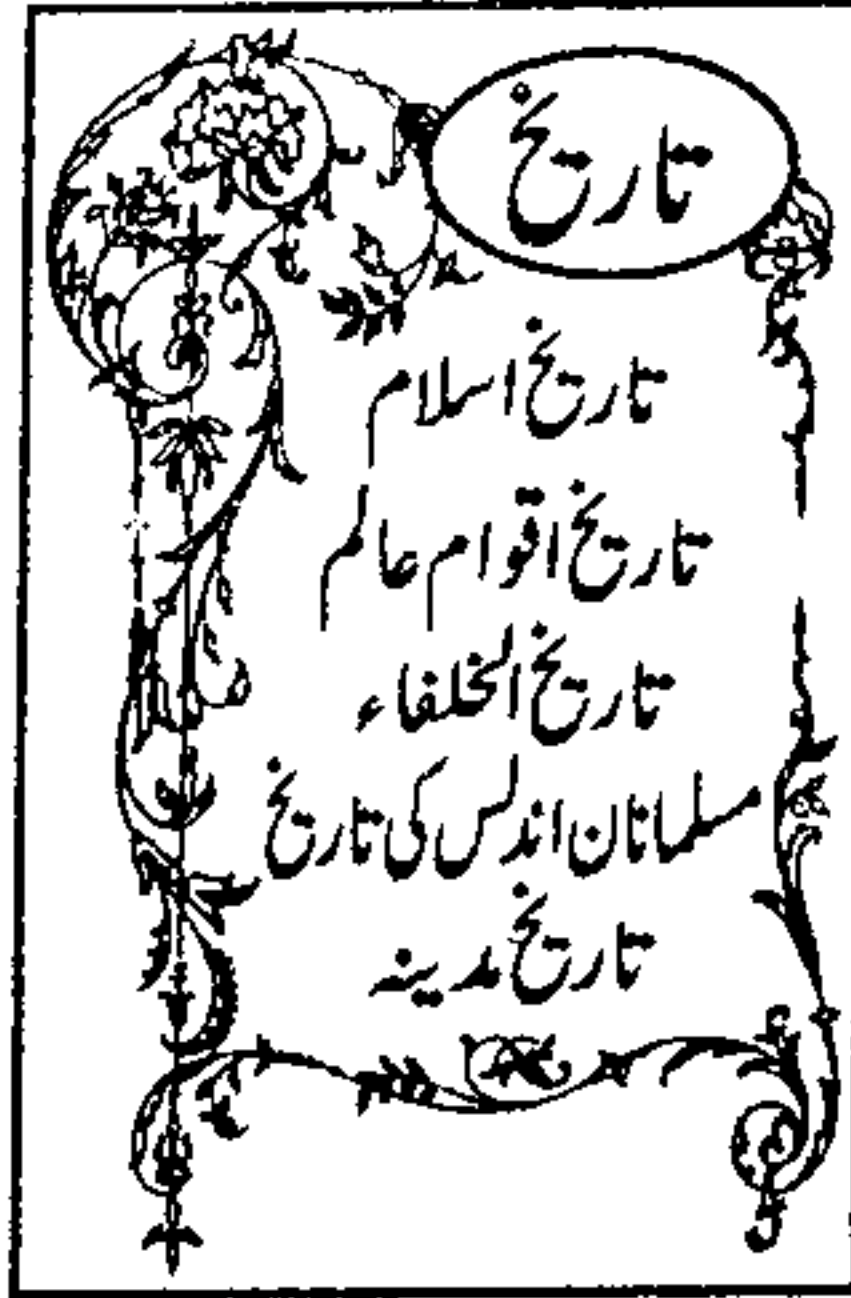 تاریخ
تاریخ اسلام
تاریخ اقوام عالم
تاریخ الخلفاء
مسلمانان اندلس کی تاریخ
تاریخ مدینہ